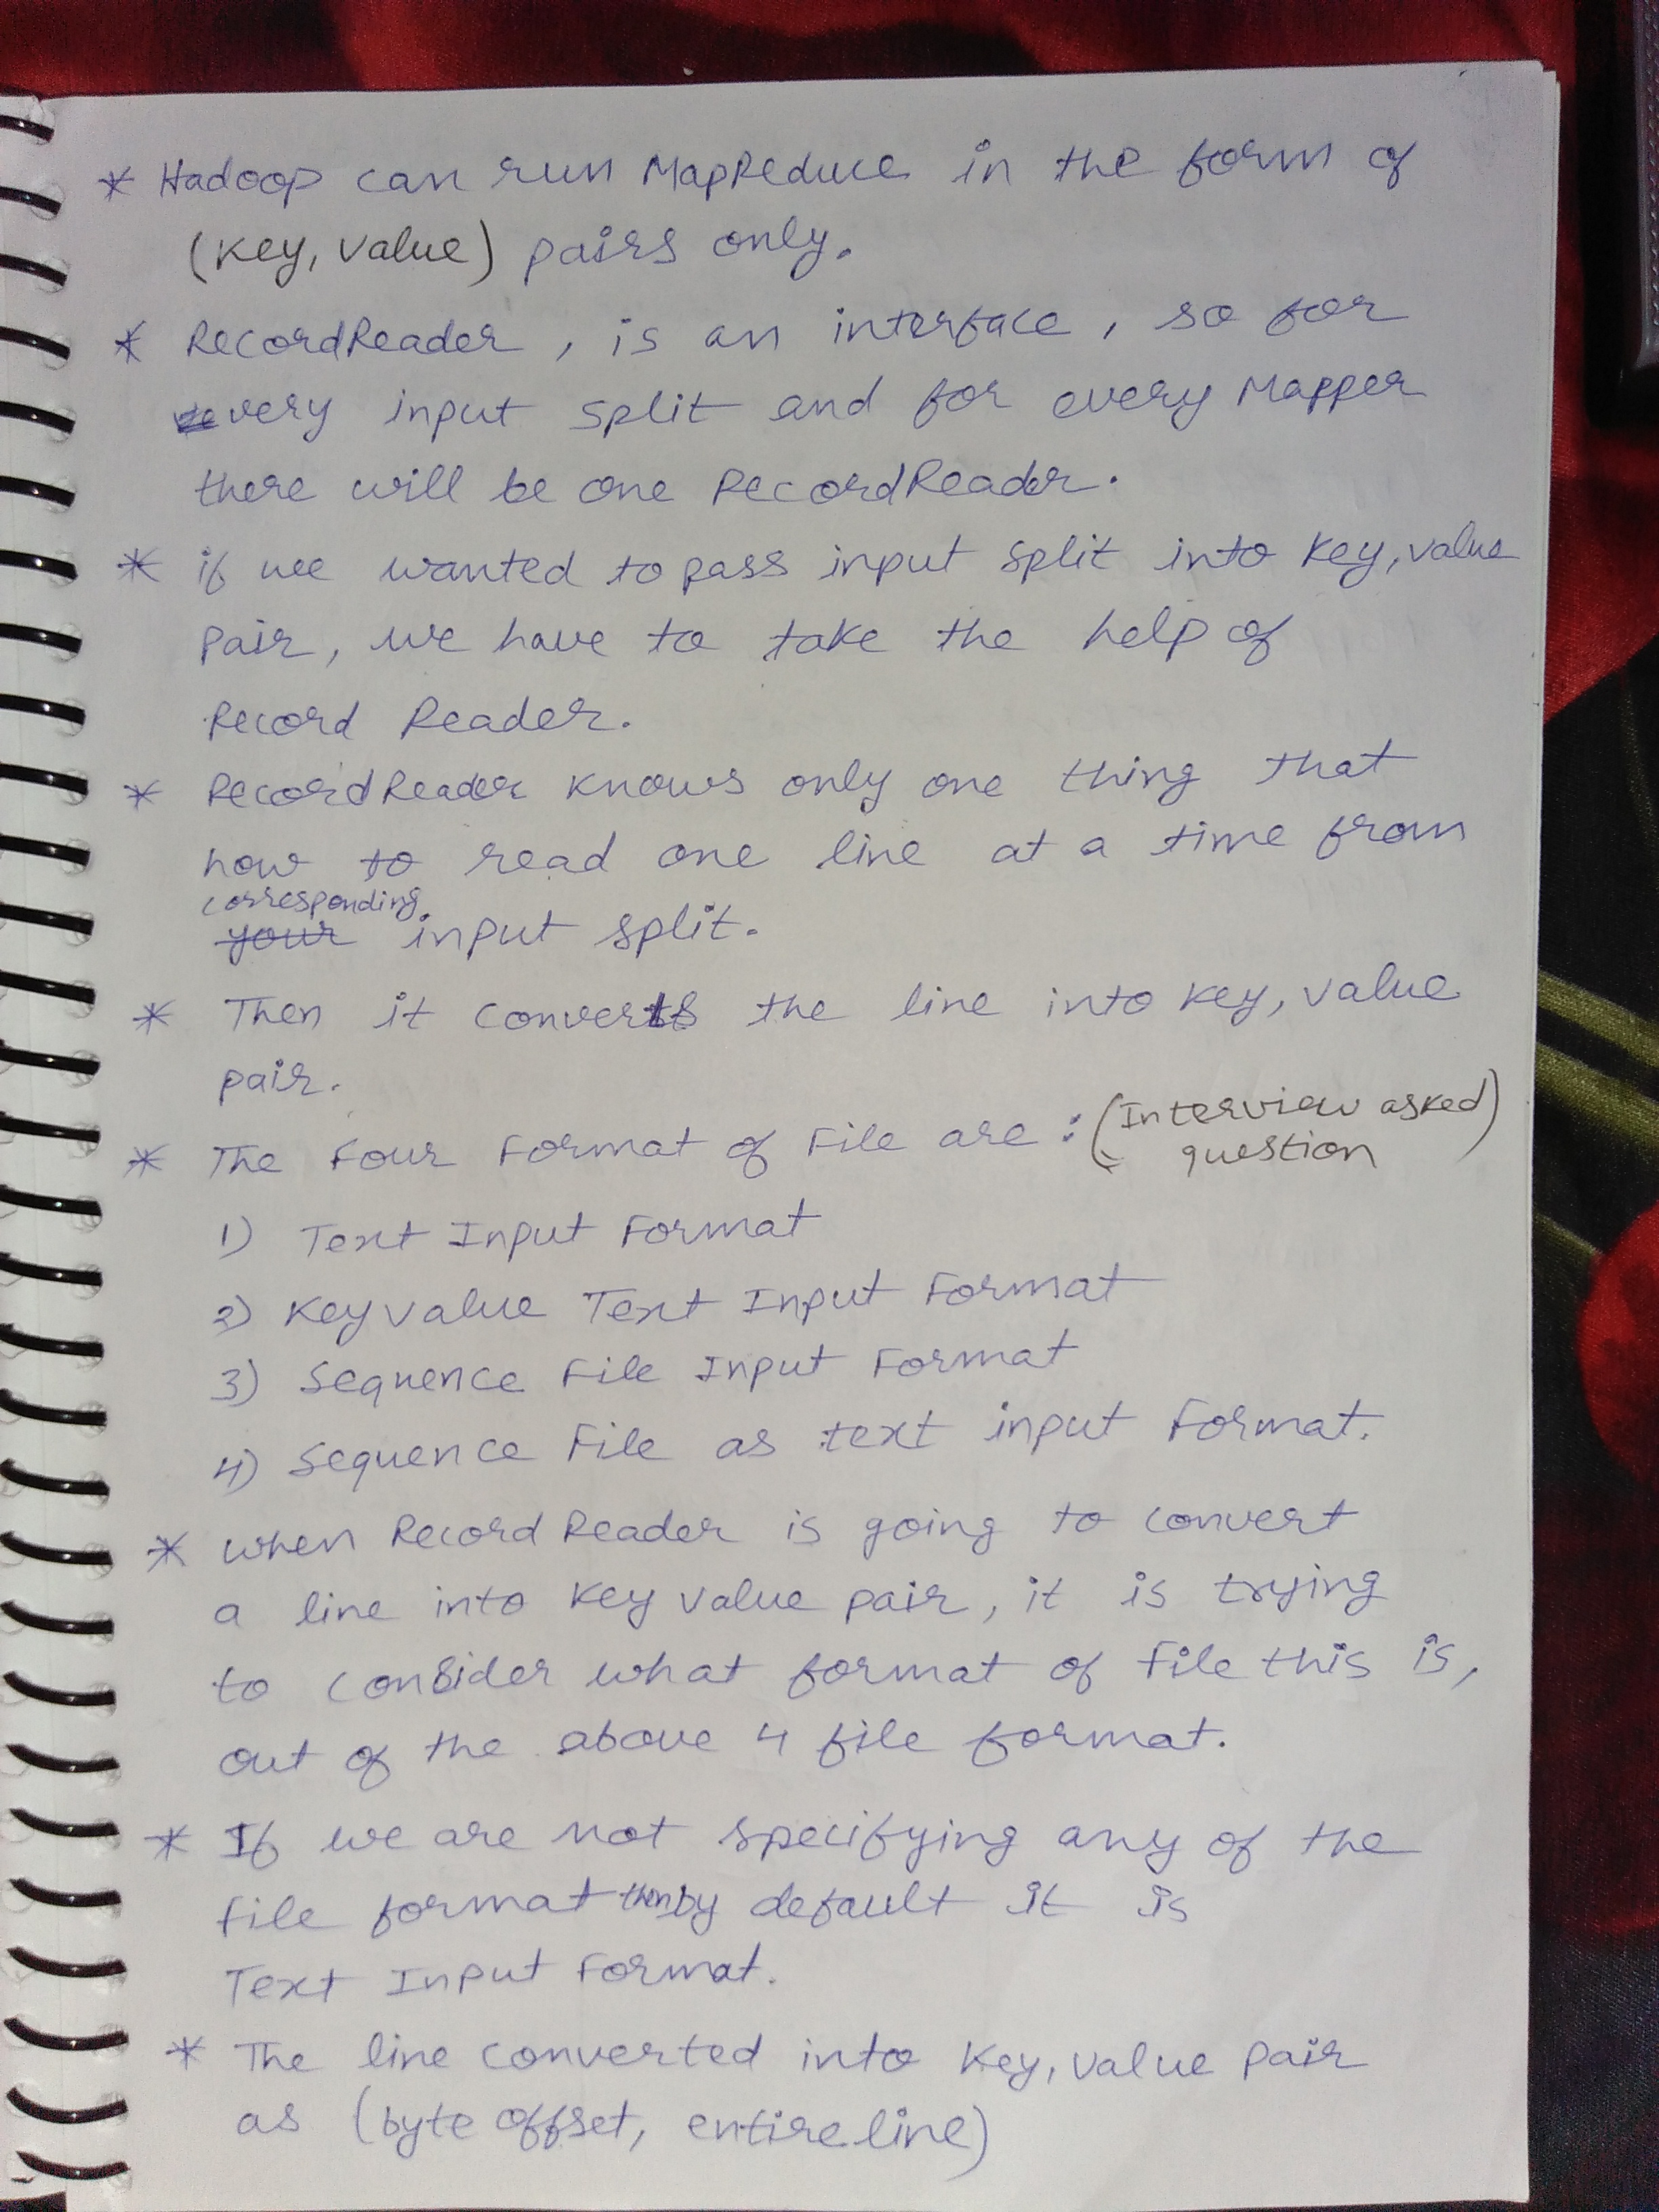 * Hadoop can run MapReduce in the form of
(Key, value) pairs only.
* RecordReader, is an interface, so for
every input split and for every Mapper
there will be one RecordReader.
* if we wanted to pass input split into Key, value
pair, we have to take the help of
Record Reader.
* RecordReader knows only one thing that
how to read one line at a time from
corresponding
your input split.
* Then it converts the line into key, value
pair.
* The Four Format of File are : (Interview asked
question)
1) Text Input Format
2) Keyvalue Text Input Format
3) Sequence File Input Format
4) Sequence File as text input Format.
* when Record Reader is going to convert
a line into Key value pair, it is trying
to consider what format of file this is,
out of the above 4 file format.
* If we are not specifying any of the
file format then by default it is
Text Input Format.
* The line converted into Key, value pair
as (byte offset, entire line)